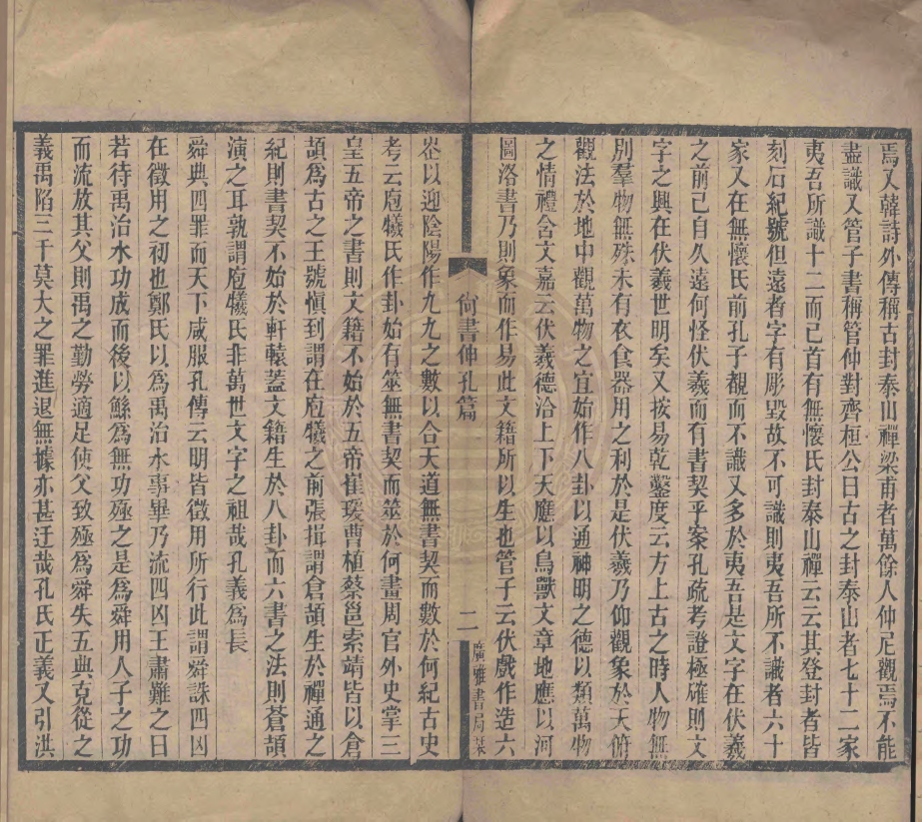 焉又韓詩外傳稱古封泰山禪梁甫者萬餘人仲尼觀焉不能
盡識又管子書稱管仲對齊桓公曰古之封泰山者七十二家
夷吾所識十二而已首有無懷氏封泰山禪云云其登封者皆
刻石紀號但遠者字有彫毀故不可識則夷吾所不識者六十
家又在無懷氏前孔子覩而不識又多於夷吾是文字在伏羲
之前已自久遠何怪伏羲而有書契乎案孔疏考證極確則文
字之興在伏羲世明矣又按易乾鑿度云方上古之時人物無
別羣物無殊未有衣食器用之利於是伏羲乃仰觀象於天俯
觀法於地中觀萬物之宜始作八卦以通神明之德以類萬物
之情禮含文嘉云伏羲德洽上下天應以鳥獸文章地應以河
圖洛書乃則象而作易此文籍所以生也管子云伏戲作造六
尚書伸孔篇
二
廣雅書局栞
峜以迎陰陽作九九之數以合天道無書契而數於何紀古史
考云庖犧氏作卦始有筮無書契而筮於何畫周官外史掌三
皇五帝之書則文籍不始於五帝崔瑗曹植蔡邕索靖皆以倉
頡爲古之王號愼到謂在庖犧之前張揖謂倉頡生於禪通之
紀則書契不始於軒轅蓋文籍生於八卦而六書之法則蒼頡
演之耳孰謂庖犧氏非萬世文字之祖哉孔義爲長
舜典四罪而天下咸服孔傳云明皆徵用所行此謂舜誅四凶
在徵用之初也鄭氏以爲禹治水事畢乃流四凶王肅難之曰
若待禹治水功成而後以鯀爲無功殛之是爲舜用人子之功
而流放其父則禹之勤勞適足使父致殛爲舜失五典克從之
義禹陷三千莫大之罪進退無據亦甚迂哉孔氏正義又引洪